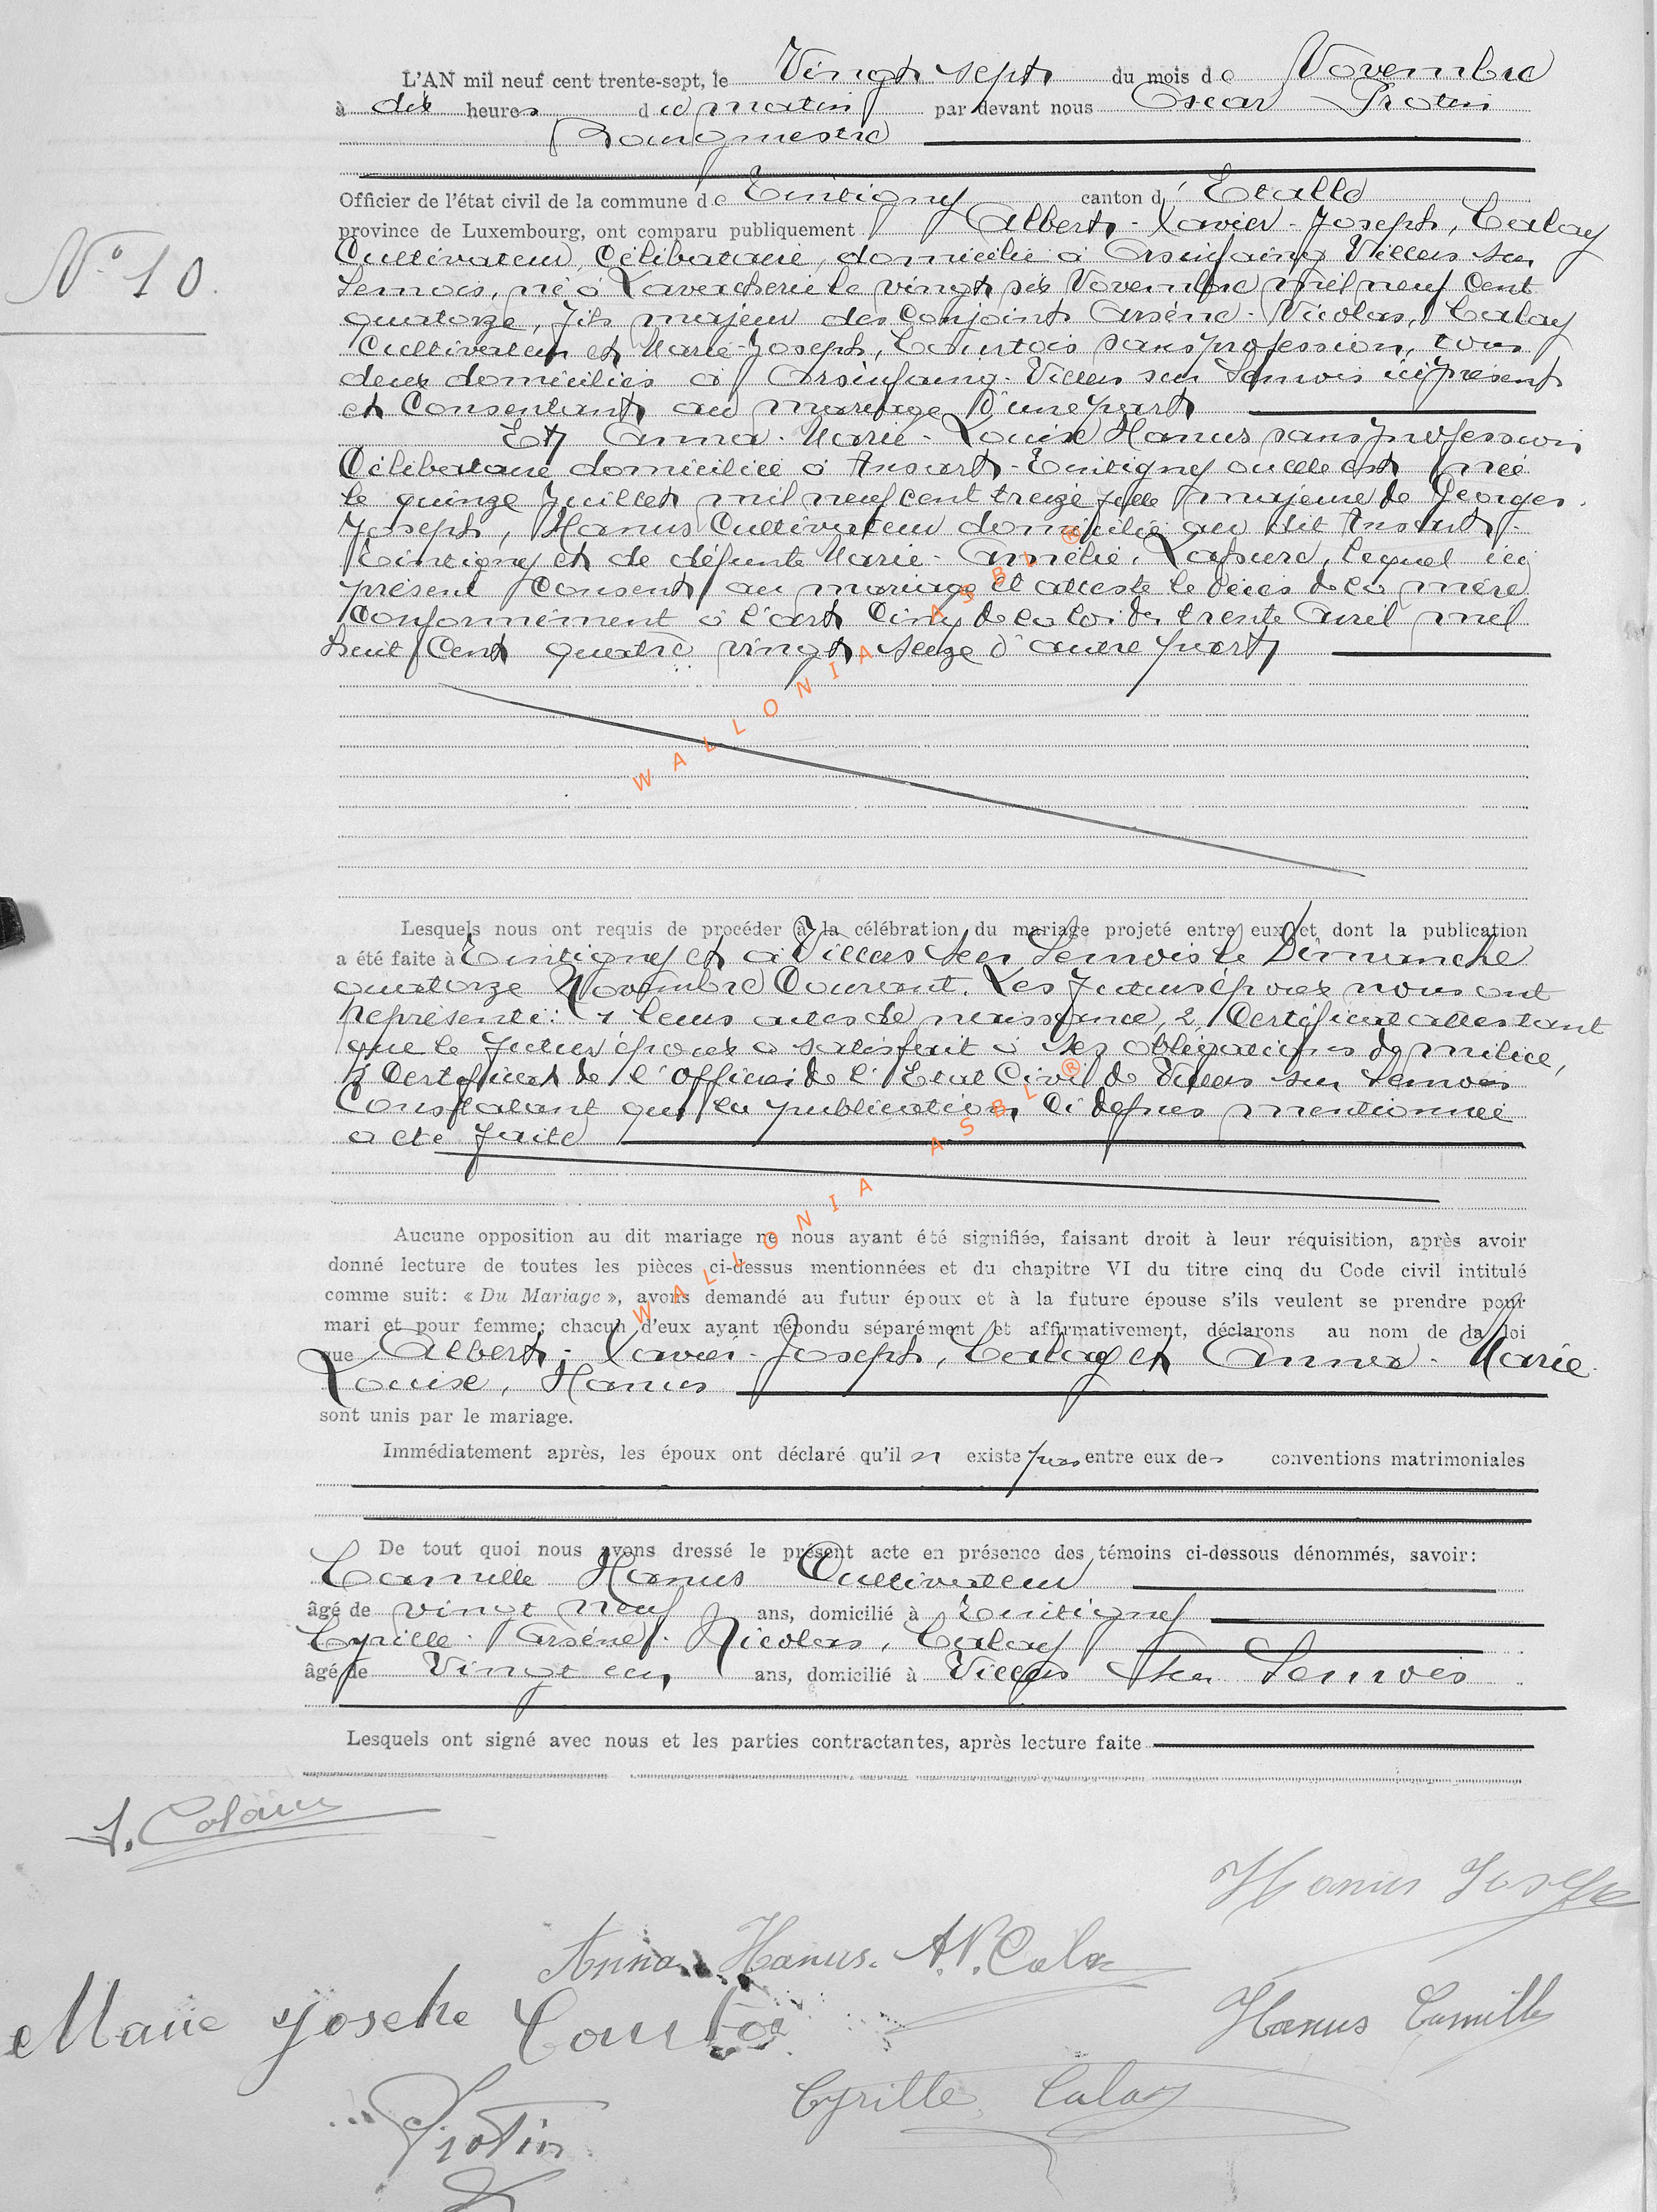 L'AN mil neuf cent trente-sept, le Vingt sept du mois de Novembre
à dix heures du matin par devant nous Oscar Protin
Bourgmestre
Officier de l'état civil de la commune de Tintigny canton d'Etalle
N° 10.
province de Luxembourg, ont comparu publiquement Albert-Xavier-Joseph, Calay
Cultivateur, Célibataire, domicilié à Orsinfaing Villers sur
Semois, né à Lavacherie le vingt six Novembre mil neuf Cent
quatorze, fils majeur des Conjoints Arsène-Nicolas, Calay
Cultivateur et Marie-Joseph, Courtois sans profession, tous
deux domiciliés à Orsinfaing-Villers sur Semois ici présent
et Consentant au mariage d'une part
Et Anna-Marie-Louise Hanus sans profession
Célibataire domiciliée à Ansart-Tintigny où elle est née
le quinze Juillet mil neuf cent treize fille majeure de Georges
Joseph, Hanus Cultivateur domicilié au dit Ansart-
Tintigny et de défunte Marie-Amélie, Lafure, lequel ici
présent Consent au mariage et atteste le décès de la mère
Conformément à l'art Cinq de la loi du trente Avril mil
huit Cent quatre vingt seize d'autre part
WALLONIA ASBL ®
Lesquels nous ont requis de procéder à la célébration du mariage projeté entre eux et dont la publication
a été faite à Tintigny et à Villers sur Semois le Dimanche
quatorze Novembre Courant. Les futurs époux nous ont
représenté: 1 leurs actes de naissance, 2, Certificat attestant
que le futur époux a satisfait à ses obligations de milice,
3 Certificat de l'Officier de l'Etat Civil de Villers sur Semois
Constatant que la publication Ci dessus mentionnée
a été faite
WALLONIA ASBL ®
Aucune opposition au dit mariage ne nous ayant été signifiée, faisant droit à leur réquisition, après avoir
donné lecture de toutes les pièces ci-dessus mentionnées et du chapitre VI du titre cinq du Code civil intitulé
comme suit: « Du Mariage », avons demandé au futur époux et à la future épouse s'ils veulent se prendre pour
mari et pour femme; chacun d'eux ayant répondu séparément et affirmativement, déclarons au nom de la loi
que Albert-Xavier-Joseph, Calay et Anna-Marie-
Louise, Hanus
sont unis par le mariage.
Immédiatement après, les époux ont déclaré qu'il n existe pas entre eux de conventions matrimoniales
De tout quoi nous avons dressé le présent acte en présence des témoins ci-dessous dénommés, savoir:
Camille Hanus Cultivateur
âgé de vingt neuf ans, domicilié à Tintigny
Cyrille-Arsène-Nicolas, Calay
âgé de Vingt un ans, domicilié à Villers sur Semois
Lesquels ont signé avec nous et les parties contractantes, après lecture faite
Hanus Joseph
Anna Hanus. A.N. Calay
Marie Josephe Courtois
Hanus Camille
Cyrille Calay
Protin